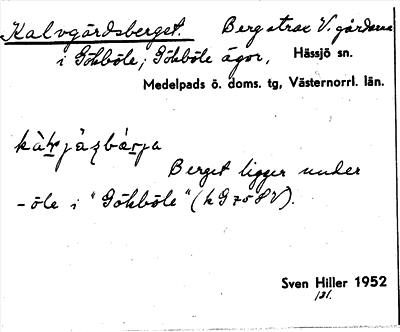 Kalvgårdsberget. Berg strax V. gårdarna
i Gökböle; Gökböle ägor, Hässjö sn.
Medelpads ö. doms. tg, Västernorrl. län.
Berget ligger under
-öle i "Gökböle" (k G 75 8 V).
Sven Hiller 1952